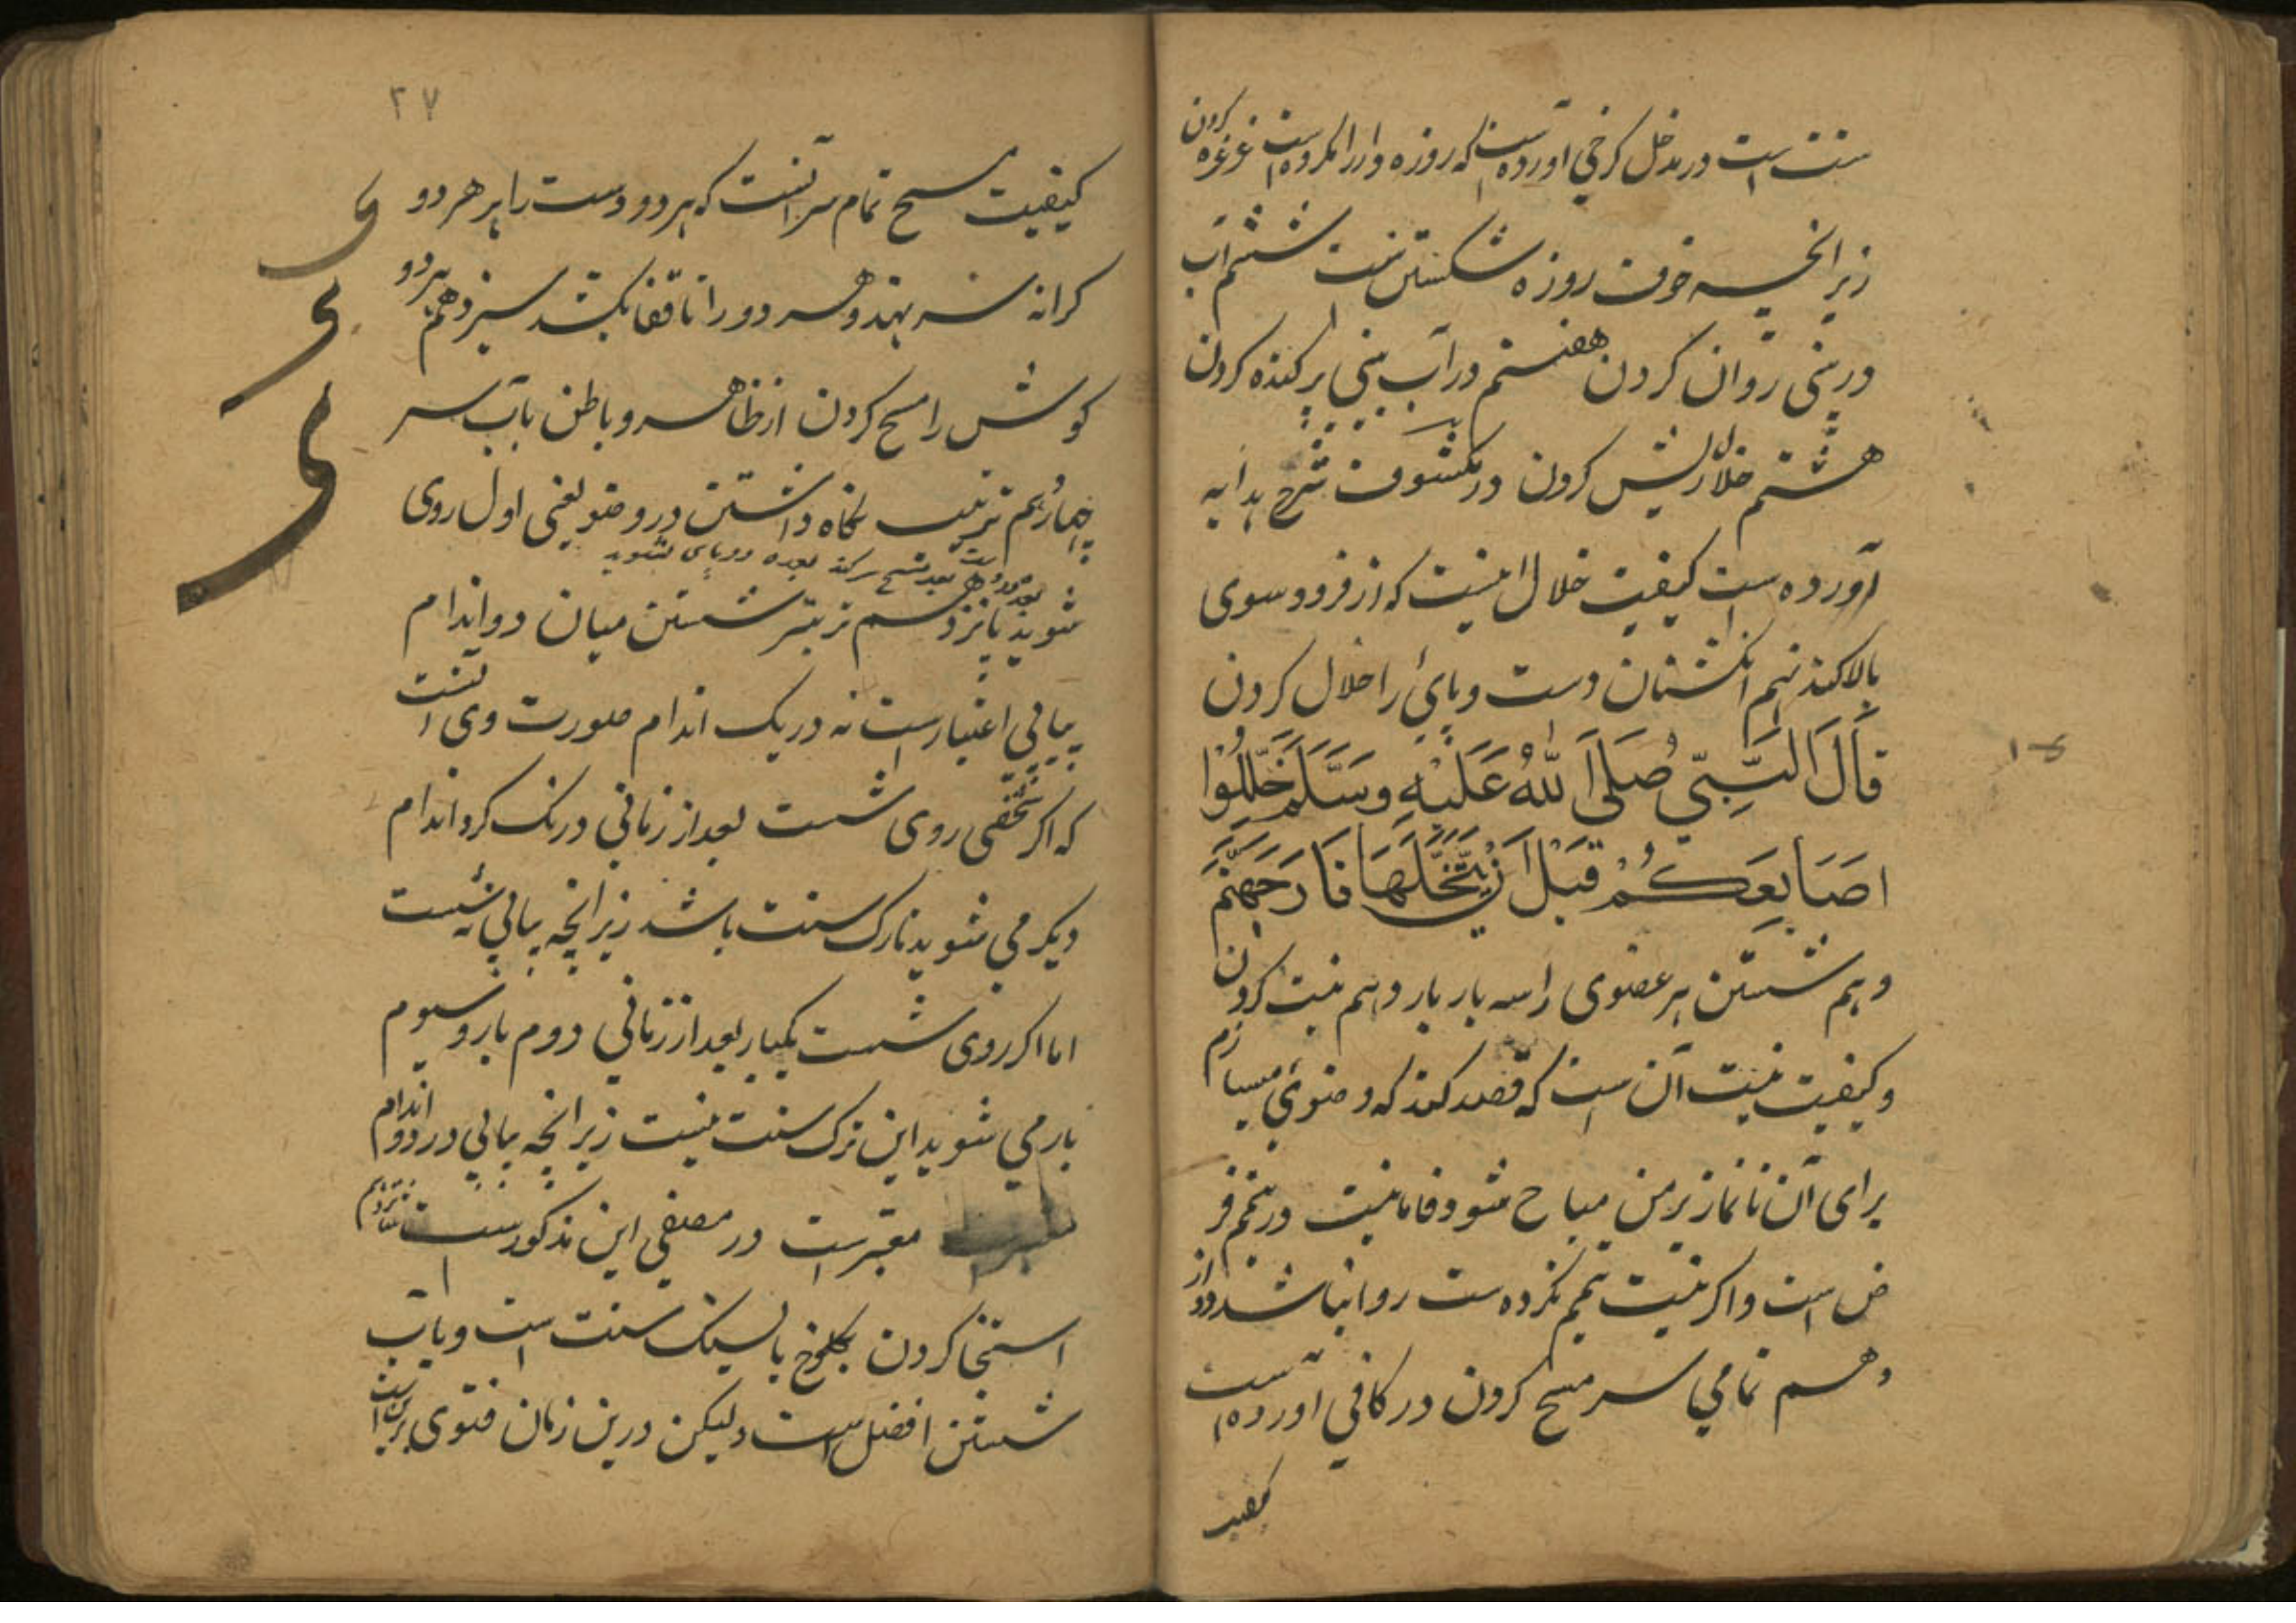 سنت است در مدخل کرخی اورده است که روزه دار را مکروه است غرغره کردن
زیرانچه خوف روزه شکستن ست ششم آب
در بینی روان کردن هفتم در آب بینی پرکنده کردن
هشتم خلال ریش کردن در مکشوف شرح بدایه
آورده ست کیفیت خلال اینست که از فرود سوی
بالا کند نهم انکشتان دست و پای را خلال کردن
قَالَ النَّبِيّ صَلَى اللّٰهُ عَلَيْهِ وَسَلَّمَ خَلِّلُوْا
اَصَابِعَكُمْ قَبْلَ اَنْ يَتَّخَلَّلَهَا نَارَ جَهَنَّمَ
دهم شستن هر عضوی را سه بار یازدهم نیت کردن
و کیفیت نیت آن ست که قصد کند که وضوی میسازم
برای آن تا نماز بر من مباح شود فاما نیت در تیمم فر
ض است و اکر نیت تیمم نکرده ست روا نباشد دواز
دهم تمامی سر مسح کردن در کافی آورده است
کیفیت
۲۷
کیفیت مسح تمام سر آنست که هر دو دست را بر هر دو
کرانه سر بنهد و هر دو را تا قفا بکشد سیزدهم هر دو
کوش را مسح کردن از ظاهر و باطن بآب سر
چهاردهم ترتیب نکاه داشتن در وضو یعنی اول روی
بعد مسح سر کند بعده دو پای بشوید
شوید پانزدهم تر بتر شستن میان دو اندام
پیاپی اعتبارست نه در یک اندام صورت وی آنست
که اکر شخصی روی شست بعد از زمانی درنک کرد اندام
دیکر می شوید تارک سنت باشد زیرانچه پیاپی نشست
اما اکر روی شست یکبار بعد از زمانی دوم بار و سیوم
بار می شوید این ترک سنت نیست زیرانچه پیاپی در دو اندام
معتبرست در مصفی این مذکورست شانزدهم
استنجا کردن بکلوخ یا بسنک سنت است و بآب
شستن افضل است و لیکن درین زمان فتوی برین است